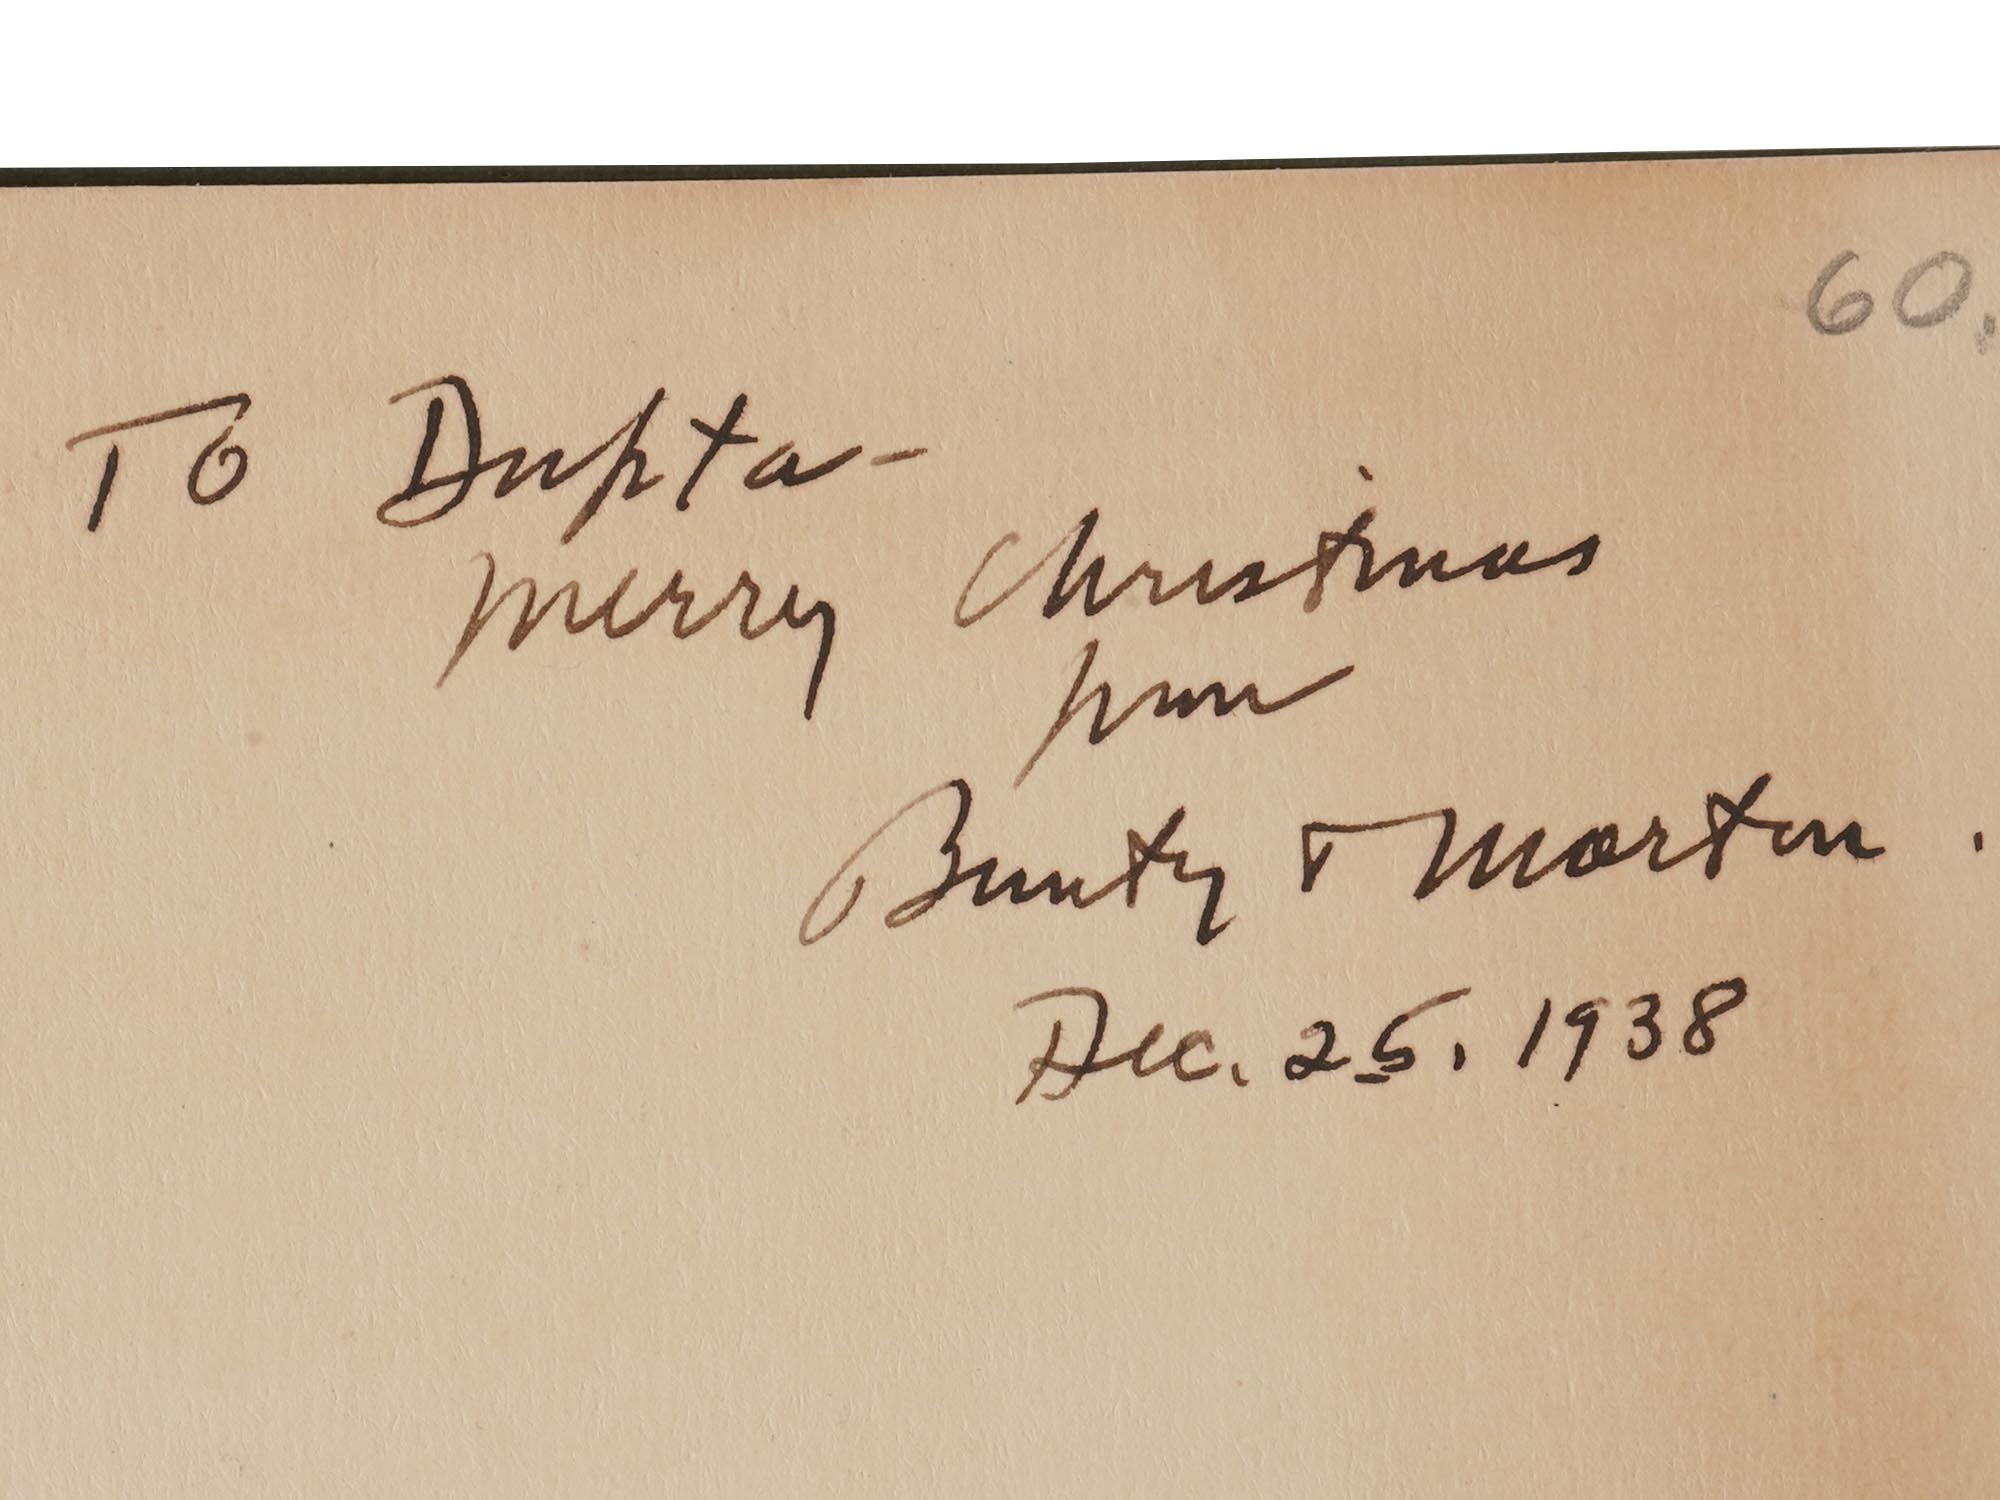 60.
To Dupta-
Merry Christmas
from
Bunty & Morton.
Dec. 25. 1938